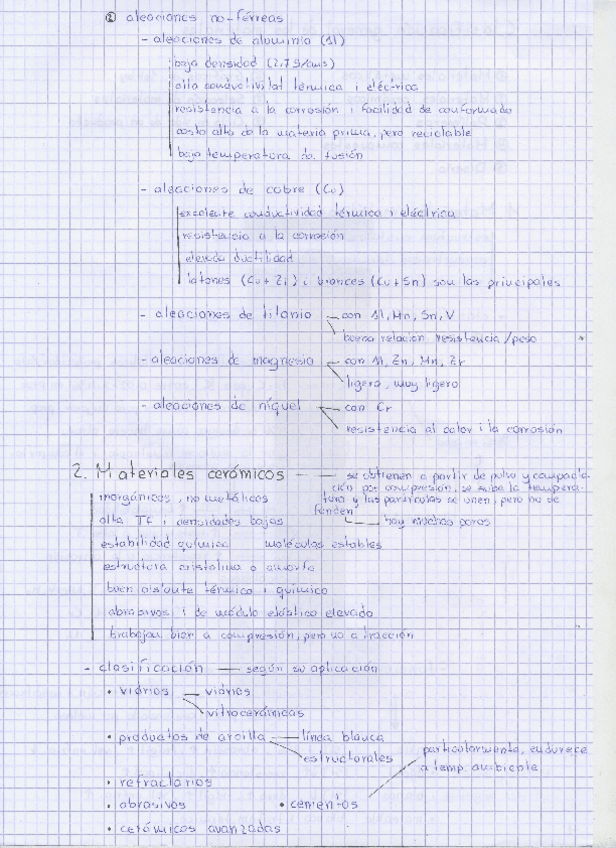 ② aleaciones no-férreas
- aleaciones de aluminio (Al)
baja densidad (2,7 g/cm3)
alta conductivitat térmica i eléctrica
resistencia a la corrosión i facilidad de conformado
costo alto de la materia prima, pero reciclable
baja temperatura de fusión
- aleaciones de cobre (Cu)
excelente conductividad térmica i eléctrica
resistencia a la corrosión
elevada ductilidad
latones (Cu + Zi) i bronces (Cu + Sn) son las principales
- aleaciones de titanio — con Al, Mn, Sn, V
buena relación resistencia/peso
- aleaciones de magnesio — con Al, Zn, Mn, Zr
ligero, muy ligero
- aleaciones de níquel — con Cr
resistencia al calor i la corrosión
2. Materiales cerámicos — se obtienen a partir de polvo y compacta-
ción por compresión, se sube la tempera-
tura y las partículas se unen, pero no se
funden
hay muchos poros
inorgánicos, no metálicos
alta Tf i densidades bajas
estabilidad química moléculas estables
estructura cristalina o amorfa
buen aislante térmico i químico
abrasivos i de módulo elástico elevado
trabajan bien a compresión, pero no a tracción
- clasificación — según su aplicación
• vidrios — vidrios
vitrocerámicas
• productos de arcilla — línea blanca
estructurales
• refractarios
• abrasivos
• cementos
particularmente, endurece
a temp. ambiente
• cerámicos avanzadas